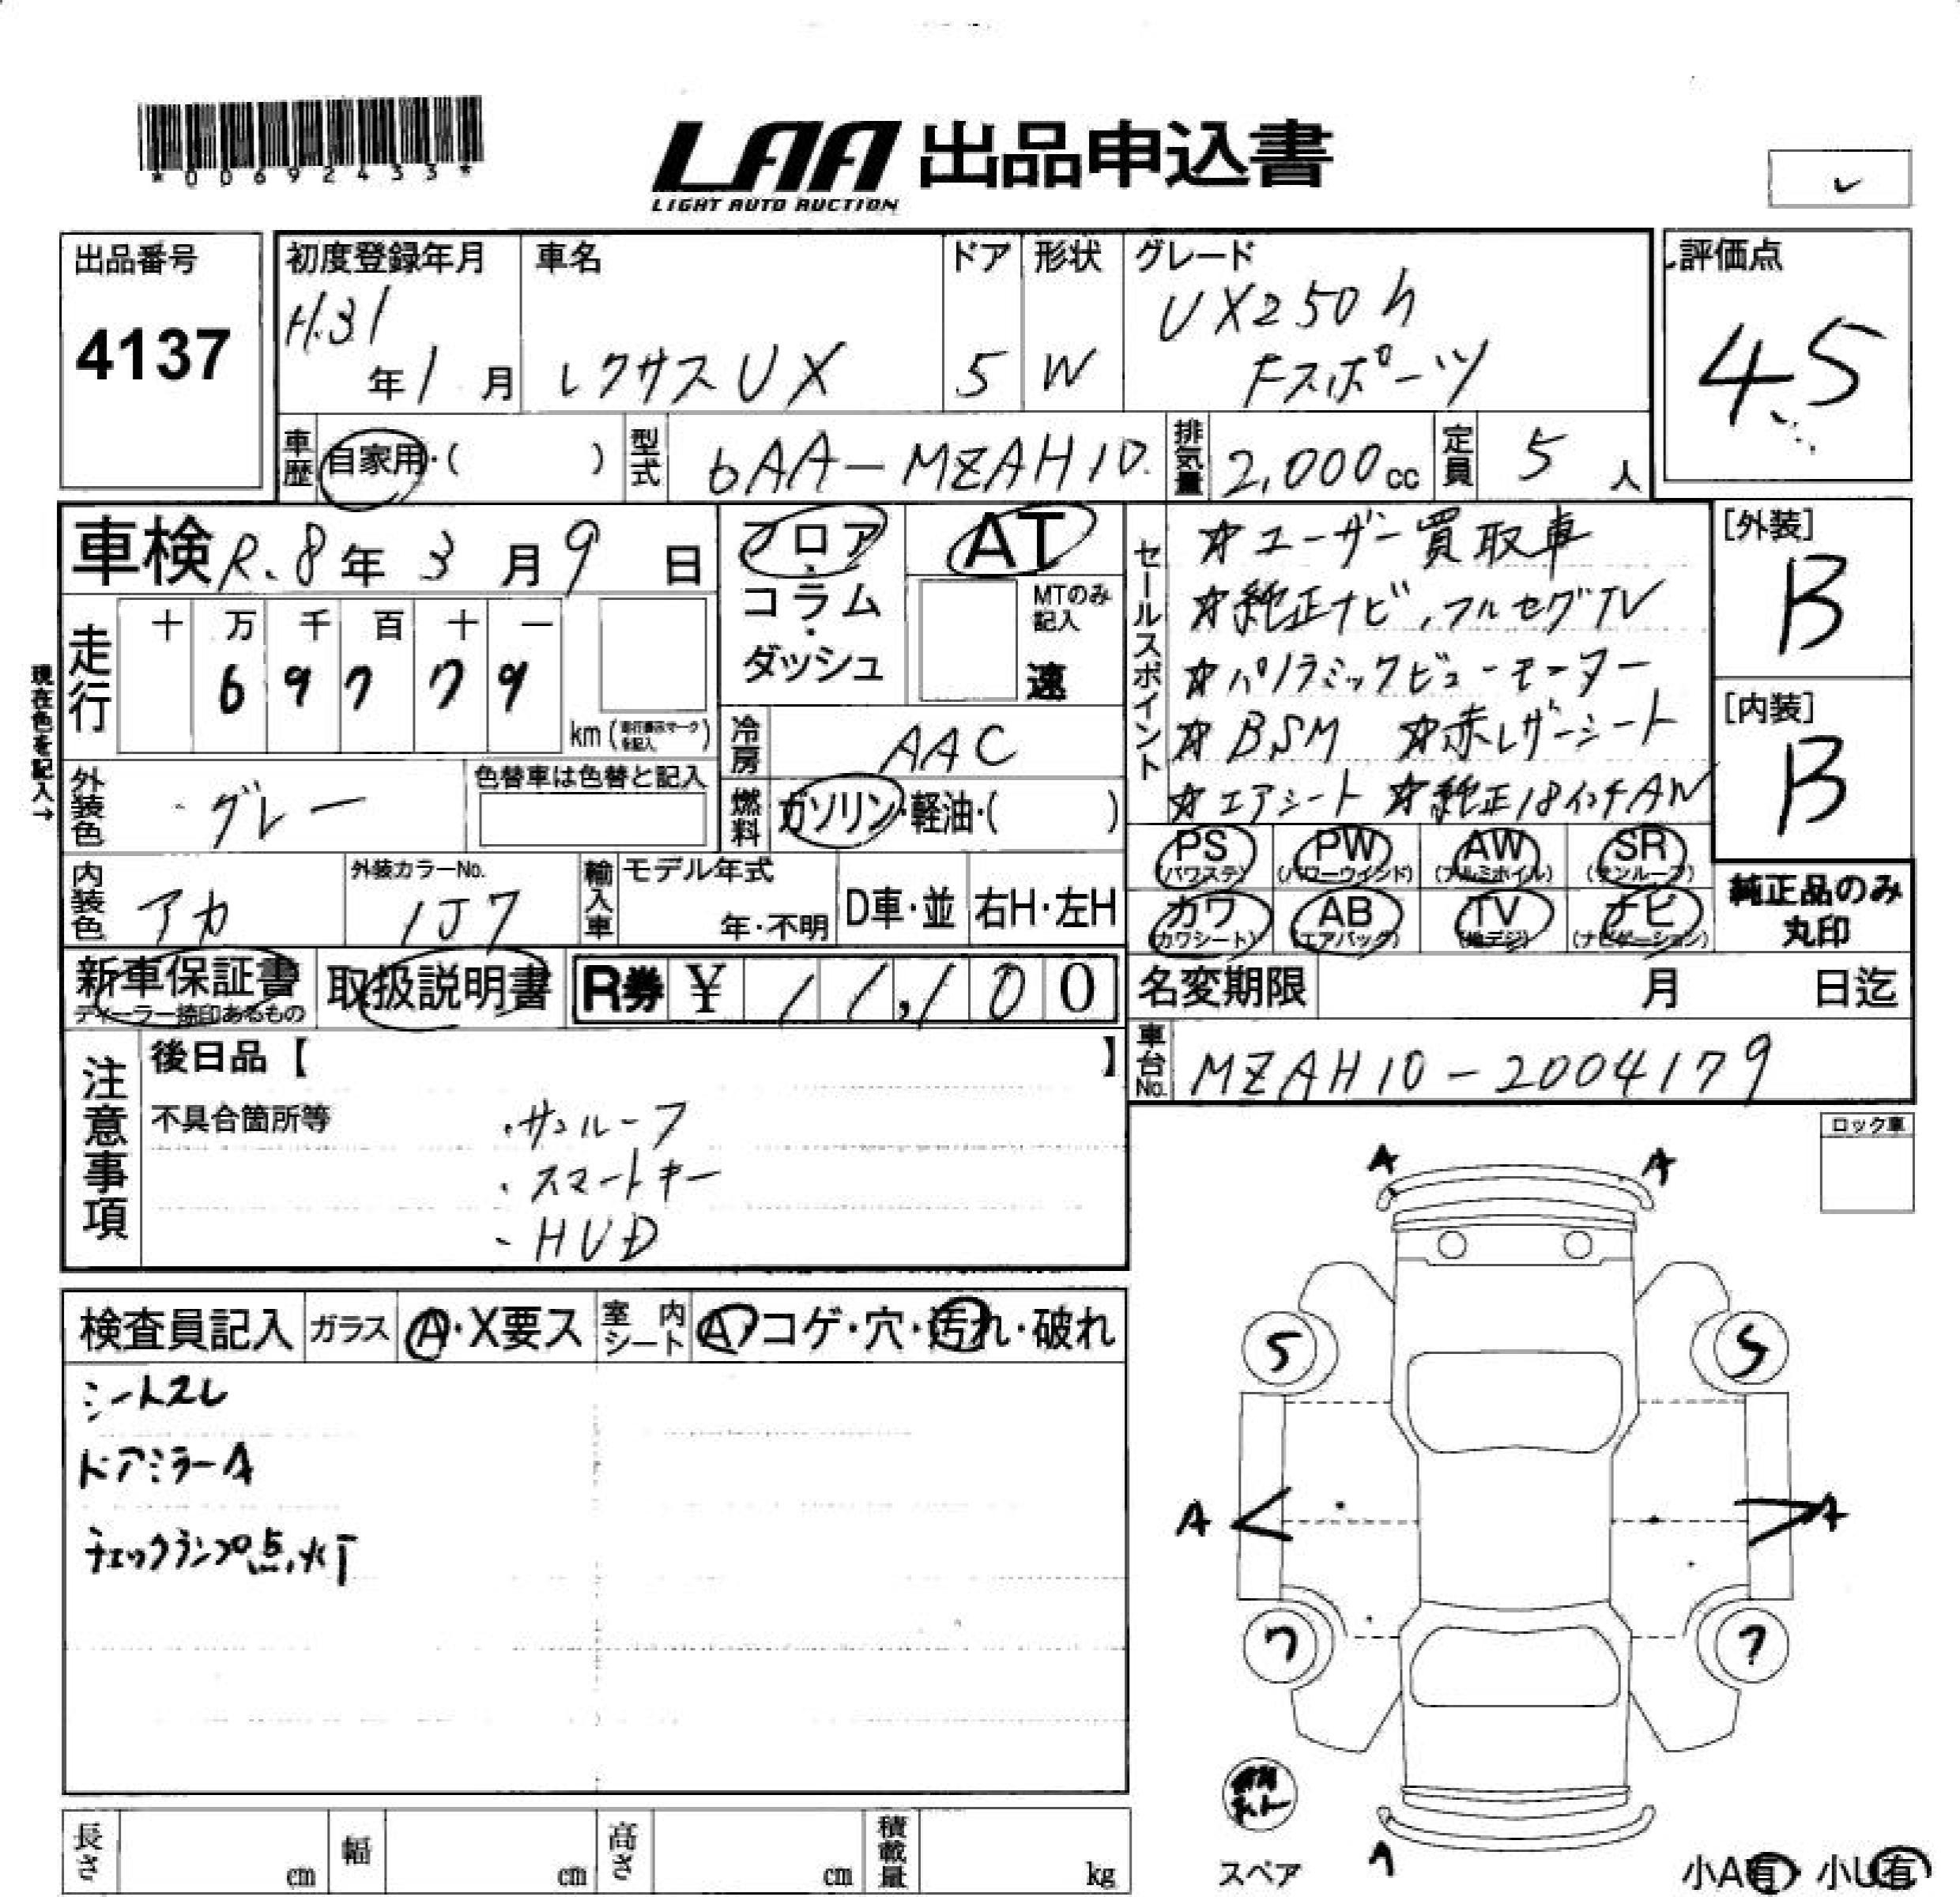 *00692433*
LAA 出品申込書
LIGHT AUTO AUCTION
出品番号
4137
初度登録年月
H.31
年1月
車名
レクサスUX
ドア
5
形状
W
グレード
UX250h
Fスポーツ
評価点
4.5
車歴
自家用・( )
型式
6AA-MZAH10
排気量
2,000cc
定員
5人
車検 R.8年3月9日
現在色を記入→
走行
十 万 千 百 十 一
6 9 7 7 9
km (走行表示マークを記入)
フロア・コラム・ダッシュ
AT
MTのみ記入
速
冷房
AAC
燃料
ガソリン・軽油・( )
外装色
グレー
色替車は色替と記入
内装色
アカ
外装カラーNo.
1J7
輸入車
モデル年式
年・不明
D車・並
右H・左H
セールスポイント
☆ユーザー買取車
☆純正ナビ、フルセグTV
☆パノラミックビューモニター
☆BSM ☆赤レザーシート
☆エアシート ☆純正18インチAW
[外装]
B
[内装]
B
PS (パワステ)
PW (パワーウインド)
AW (アルミホイル)
SR (サンルーフ)
カワ (カワシート)
AB (エアバック)
TV (地デジ)
ナビ (ナビゲーション)
純正品のみ
丸印
新車保証書
ディーラー捺印あるもの
取扱説明書
R券 ¥ 11,100
名変期限 月 日迄
車台No.
MZAH10-2004179
注意事項
後日品【 】
不具合箇所等
・サンルーフ
・スマートキー
・HUD
ロック車
検査員記入
ガラス
A・X要ス
室内シート
A・コゲ・穴・汚れ・破れ
シートスレ
ドアミラーA
チェックランプ点灯
A A
5 5
A A
7 7
A
スペア
小A有・小U有
長さ cm
幅 cm
高さ cm
積載量 kg